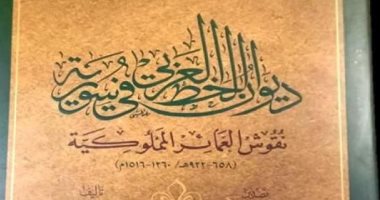 ديوان الخط العربي في سورية
نقوش العمائر المملوكية
(٦٥٨-٩٢٢هـ/١٢٦٠-١٥١٦م)
تصدير تأليف